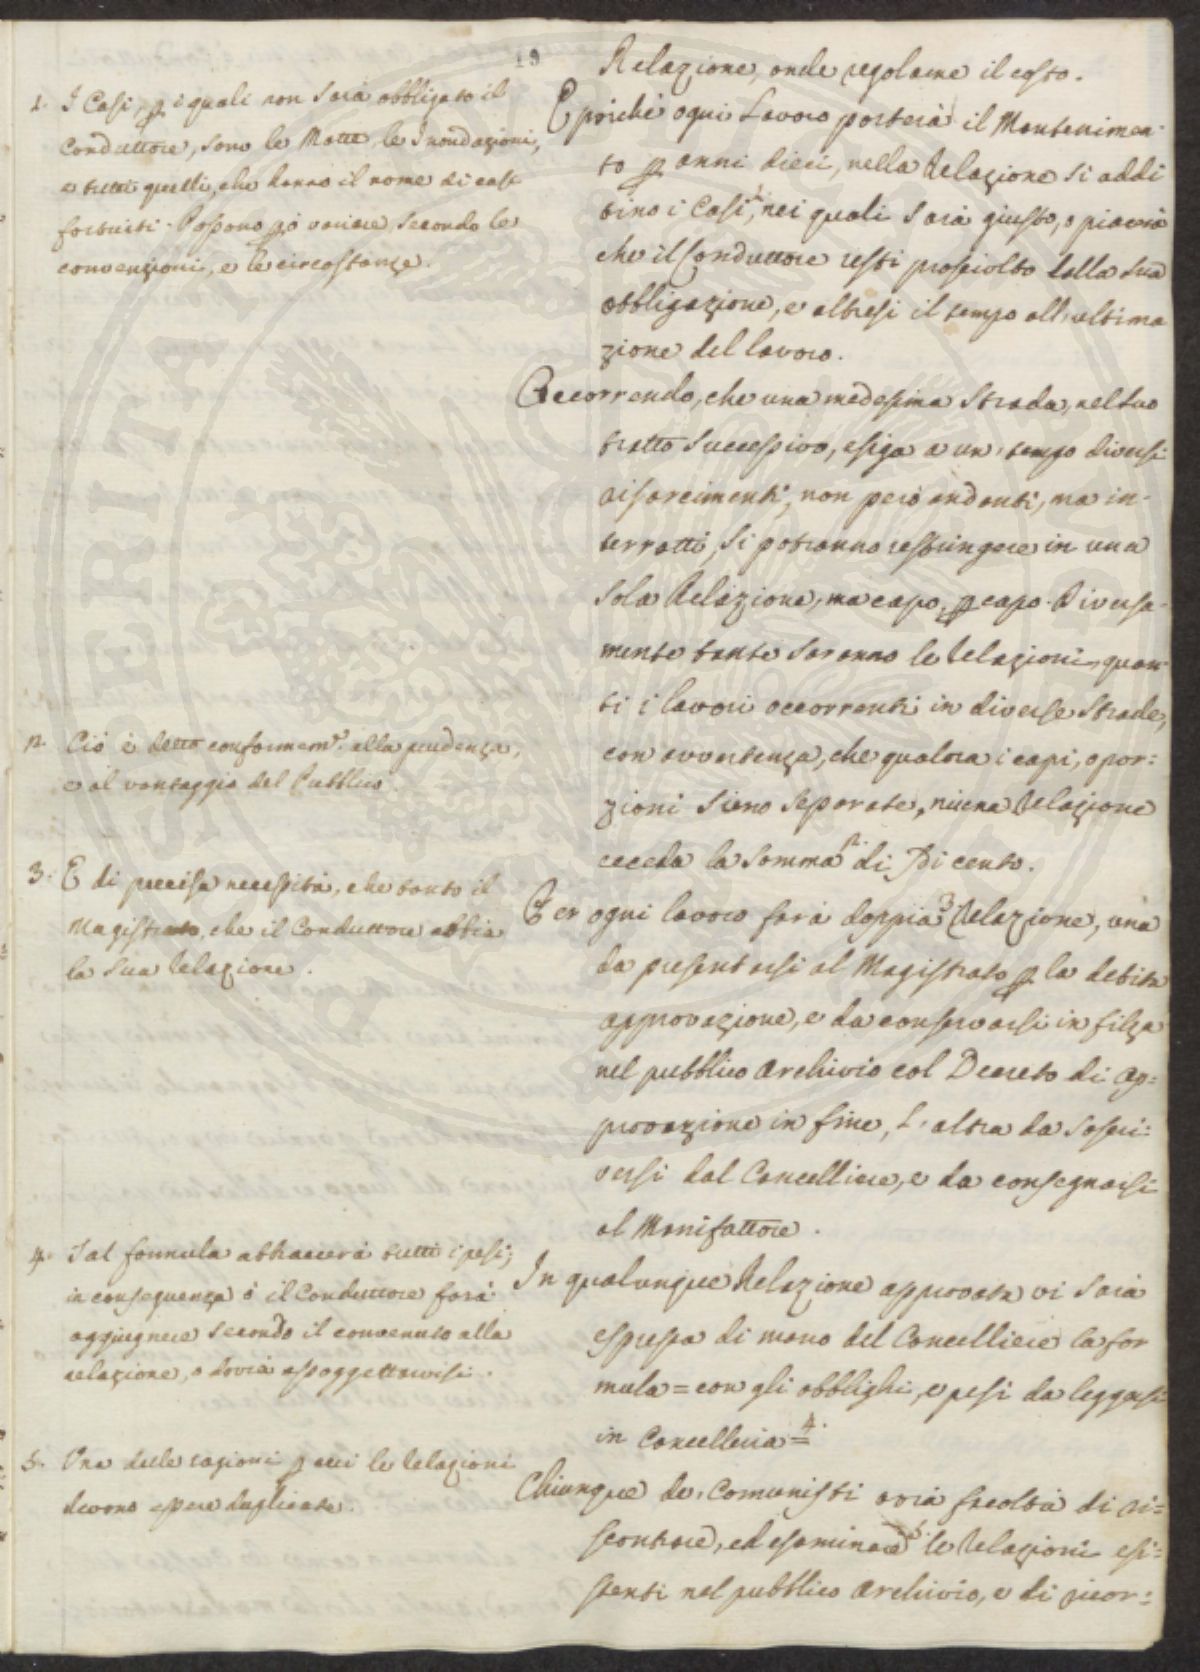 19
1. I Casi, p i quali non Sarà obbligato il
Conduttore, sono le Motte, le Inondazioni,
e tutti quelli, che danno il nome di casi
fortuiti. Possono però variare, secondo le
convenzioni, e le circostanze.
2. Ciò è detto conformemte alla prudenza,
e al vantaggio del Pubblico.
3. È di precisa necessità, che tanto il
Magistrato, che il Conduttore abbia
la sua Relazione.
4. Tal formula abbraccerà tutti i pesi;
in conseguenza ò il Conduttore farà
aggiugnere secondo il convenuto alla
relazione, o dovrà assoggettarvisi.
5. Una delle ragioni p cui le Relazioni
devono essere duplicate.
Relazione, onde regolarne il costo.
E poiche ogni Lavoro porterà il Mantenimen-
to p anni dieci, nella Relazione si addi
tino i Casi,1. nei quali Sarà giusto, o piacerà
che il Conduttore resti prosciolto dalla sua
obbligazione, e altresi il tempo all'ultima
zione del lavoro.
Occorrendo, che una medesima Strada, nel suo
tratto successivo, esiga a un' tempo diversi
risarcimenti, non però andanti, ma in-
terrotti, si potranno restringere in una
sola Relazione, ma capo, p capo. Diversa-
mente tante saranno le Relazioni, quan-
ti i lavori occorrenti in diverse Strade,
con avvertenza, che qualora i capi, o por=
zioni sieno separate, niuna Relazione
ecceda la Somma2. di Di cento.
Per ogni lavoro farà doppia3. Relazione, una
da presentarsi al Magistrato p la debita
approvazione, e da conservarsi in filza
nel pubblico Archivio col Decreto di ap=
provazione in fine, L'altra da soscri=
versi dal Cancelliere, e da consegnarsi
al Manifattore.
In qualunque Relazione approvata vi Sarà
espressa di mano del Cancelliere la for
mula = con gli obblighi, e pesi da leggersi
in Cancelleria =4.
Chiunque de' Comunisti avrà facoltà di ri=
scontrare, ed esaminare5. le Relazioni esi=
stenti nel pubblico Archivio, e di ricor=